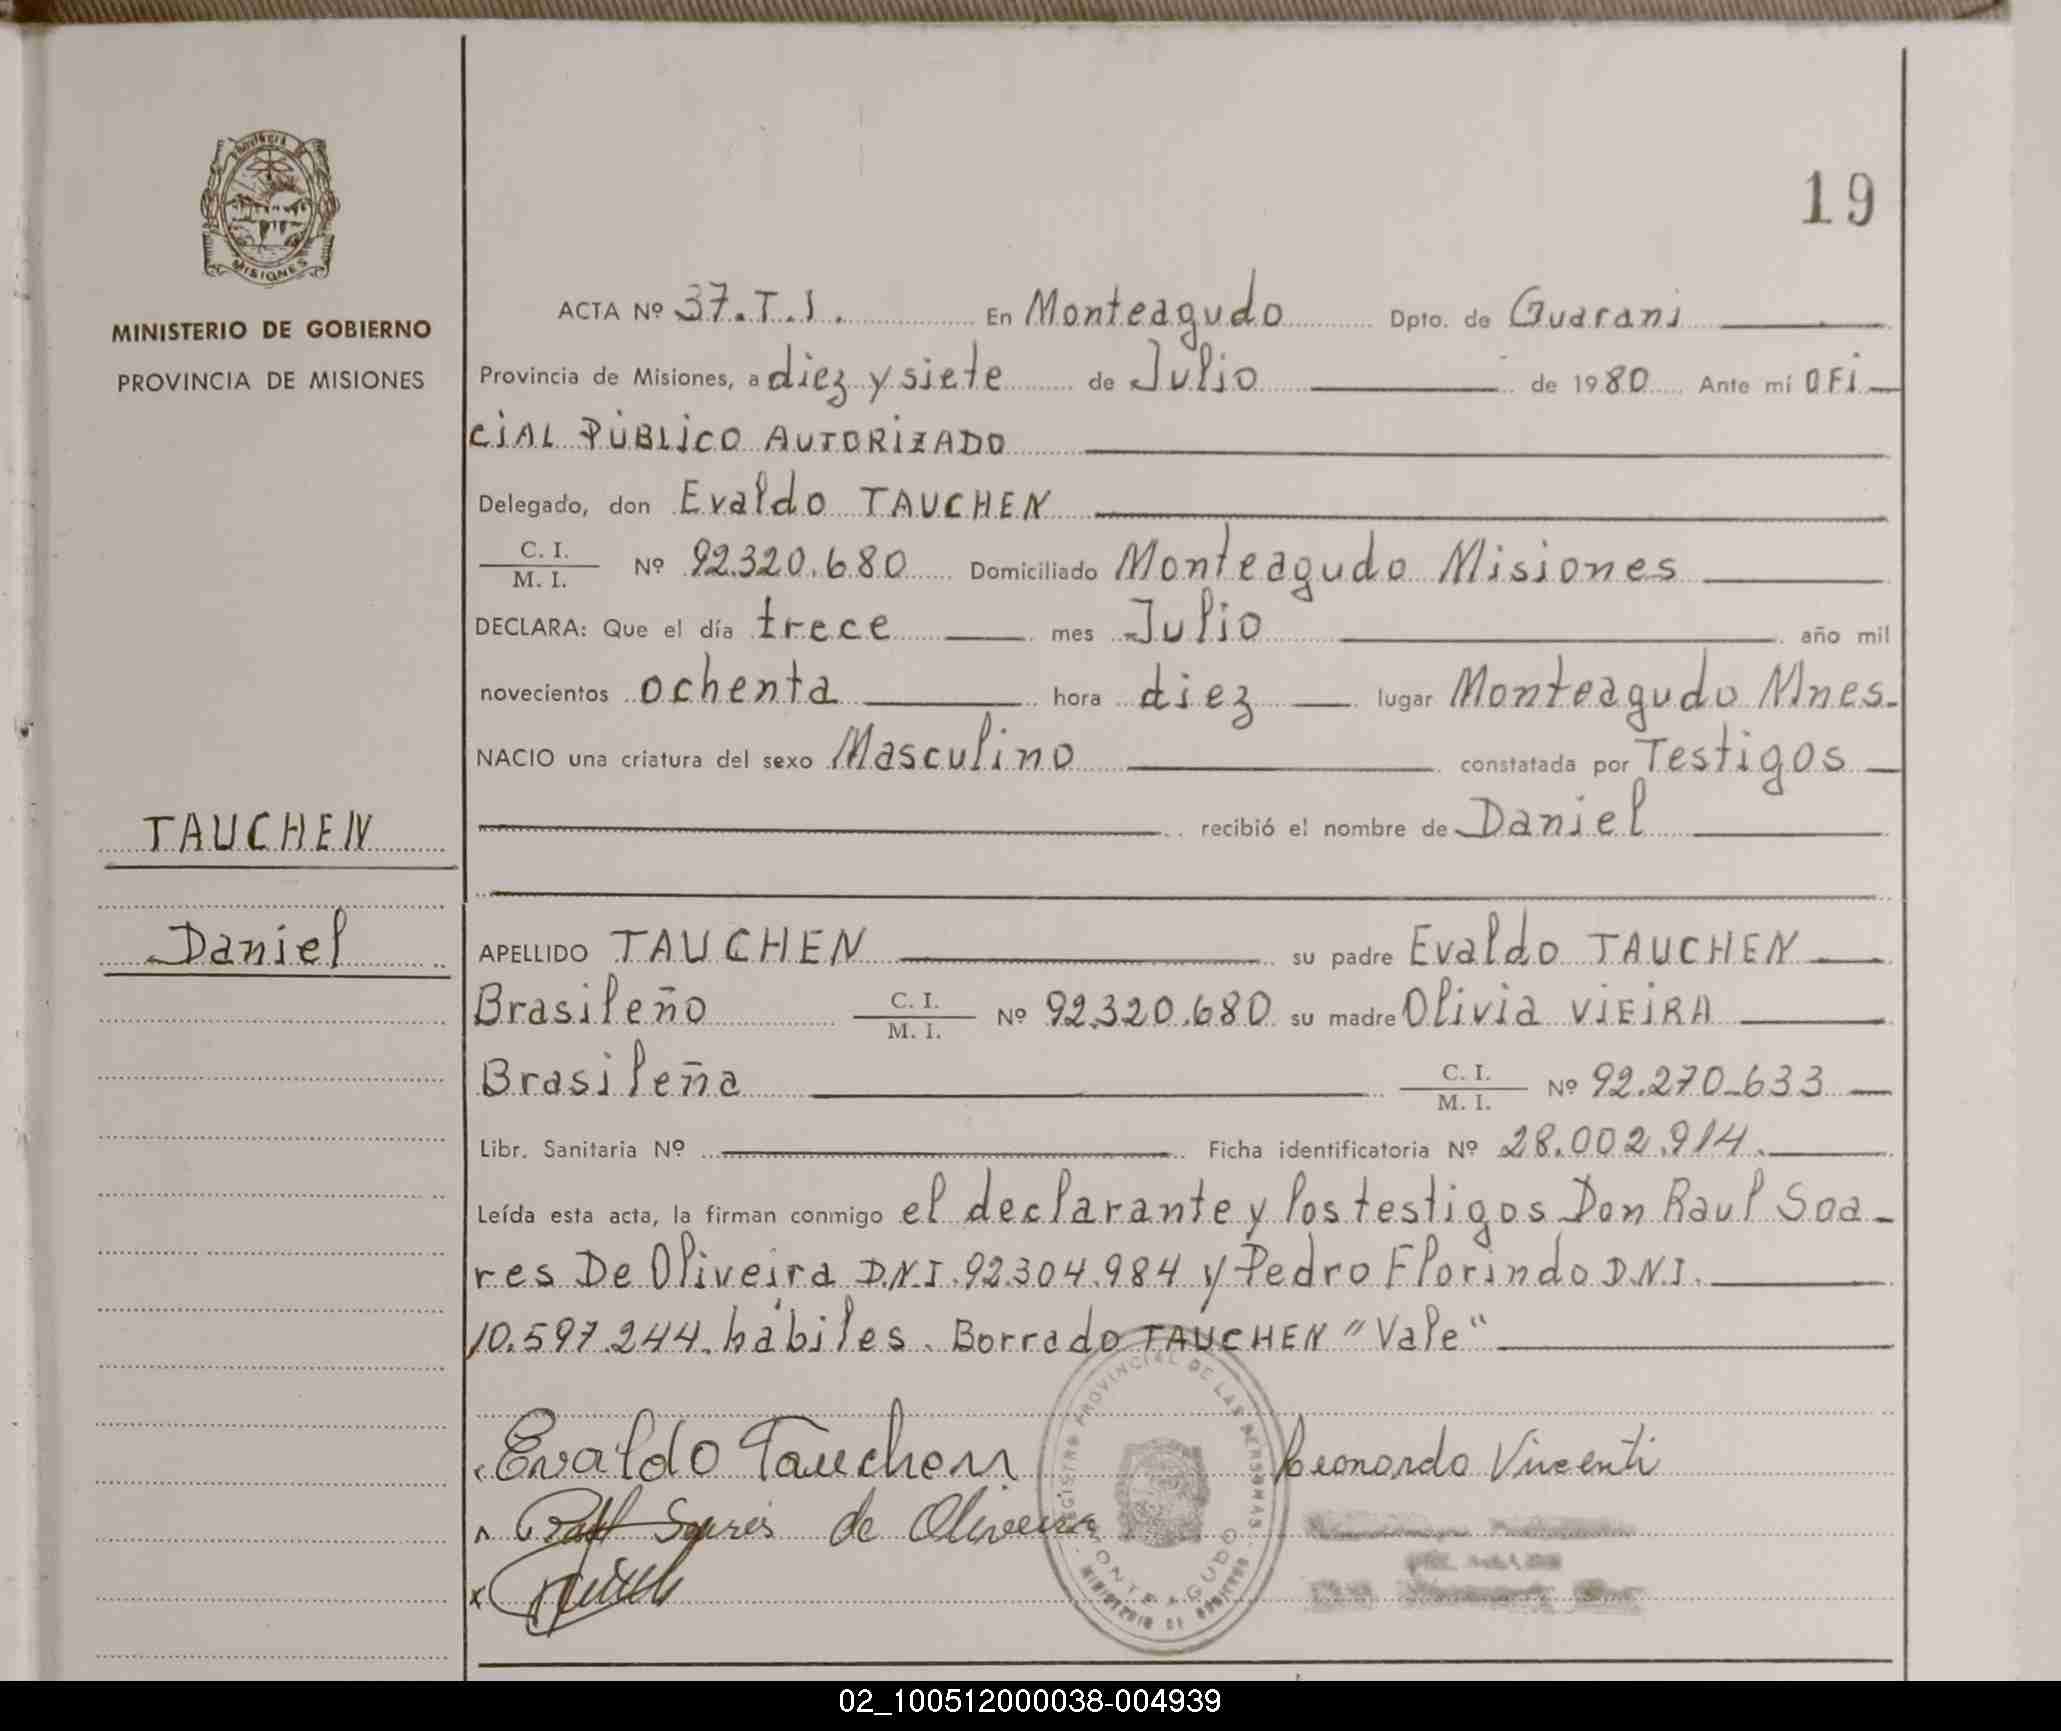 19
PROVINCIA DE
MISIONES
MINISTERIO DE GOBIERNO
PROVINCIA DE MISIONES
TAUCHEN
Daniel
ACTA Nº 37.T.I. En Monteagudo Dpto. de Guarani
Provincia de Misiones, a diez y siete de Julio de 1980 Ante mí OFi
CiAL PÚBLiCO AUTORiZADO
Delegado, don Evaldo TAUCHEN
C. I.
M. I. Nº 92.320.680 Domiciliado Monteagudo Misiones
DECLARA: Que el día trece mes Julio año mil
novecientos ochenta hora diez lugar Monteagudo Mnes.
NACIO una criatura del sexo Masculino constatada por Testigos
recibió el nombre de Daniel
APELLIDO TAUCHEN su padre Evaldo TAUCHEN
Brasileño C. I. M. I. Nº 92.320.680 su madre Olivia ViEiRA
Brasileña C. I. M. I. Nº 92.270-633
Libr. Sanitaria Nº Ficha identificatoria Nº 28.002.914.
Leída esta acta, la firman conmigo el declarante y los testigos Don Raul Soa-
res De Oliveira D.N.I. 92.304.984 y Pedro Florindo D.N.I.
10.597.244. hábiles. Borrado TAUCHEN "Vale"
Evaldo Tauchen
Leonardo Vicenti
Soares de Oliveira
REGISTRO PROVINCIAL DE LAS PERSONAS
MONTEAGUDO
MINISTERIO DE GOBIERNO
02_100512000038-004939